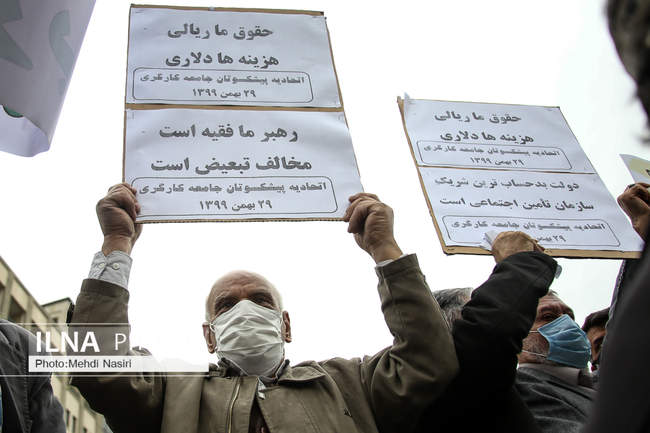 حقوق ما ریالی
هزینه ها دلاری
اتحادیه پیشکسوتان جامعه کارگری
۲۹ بهمن ۱۳۹۹
رهبر ما فقیه است
مخالف تبعیض است
اتحادیه پیشکسوتان جامعه کارگری
۲۹ بهمن ۱۳۹۹
حقوق ما ریالی
هزینه ها دلاری
اتحادیه پیشکسوتان جامعه کارگری
۲۹ بهمن ۱۳۹۹
دولت بدحساب ترین شریک
سازمان تأمین اجتماعی است
اتحادیه پیشکسوتان جامعه کارگری
۲۹ بهمن ۱۳۹۹
ILNA PHOTO
Photo:Mehdi Nasiri